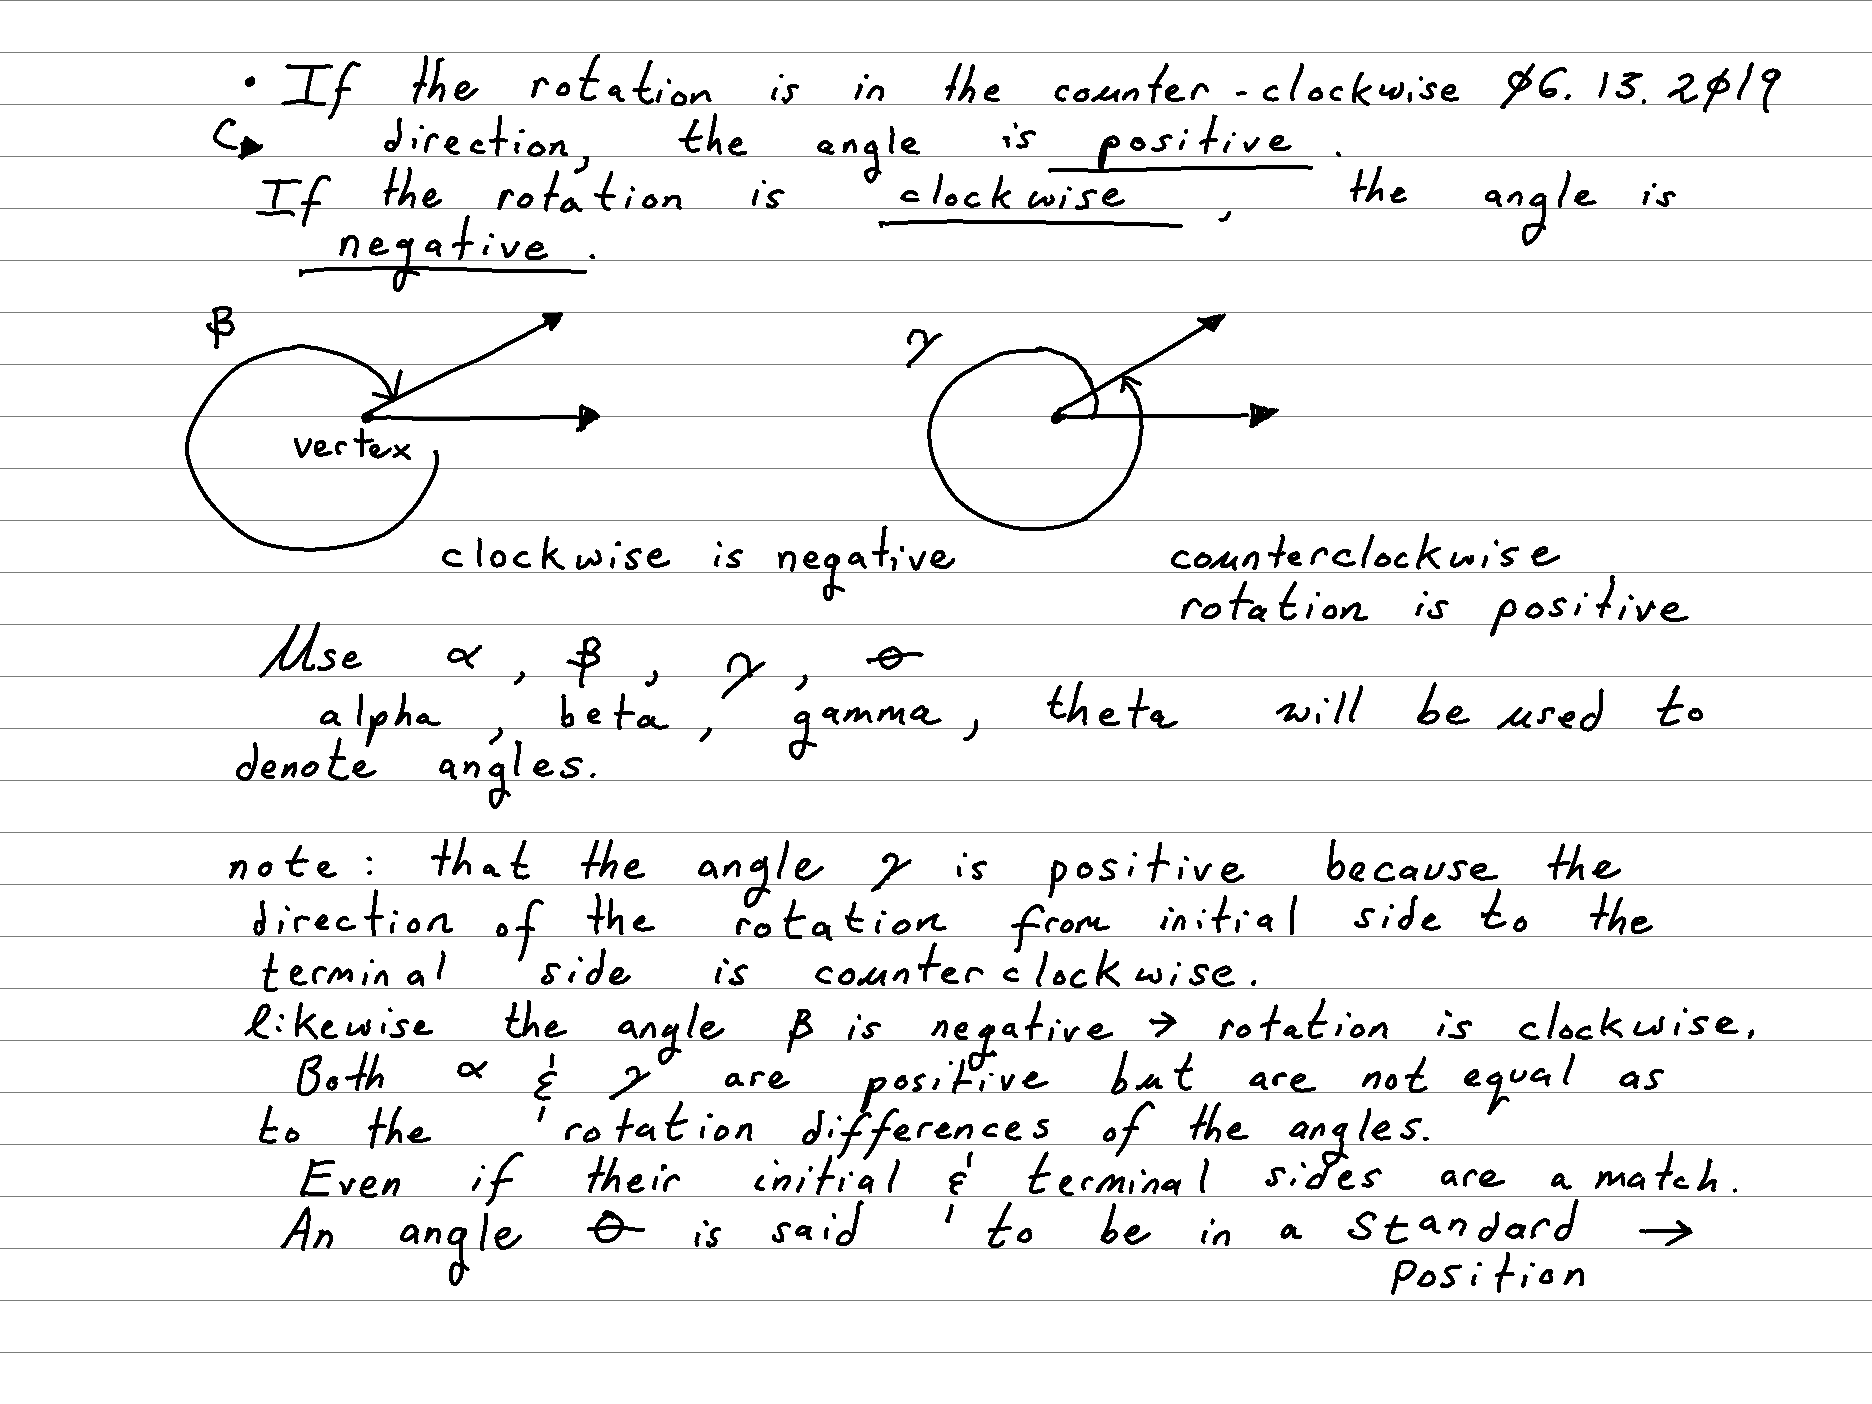 • If the rotation is in the counter-clockwise 06.13.2019
direction, the angle is positive.
If the rotation is clockwise, the angle is
negative.
β
γ
vertex
clockwise is negative
counterclockwise
rotation is positive
Use α, β, γ, θ
alpha, beta, gamma, theta will be used to
denote angles.
note: that the angle γ is positive because the
direction of the rotation from initial side to the
terminal side is counterclockwise.
likewise the angle β is negative → rotation is clockwise.
Both α & γ are positive but are not equal as
to the rotation differences of the angles.
Even if their initial & terminal sides are a match.
An angle θ is said to be in a Standard →
Position